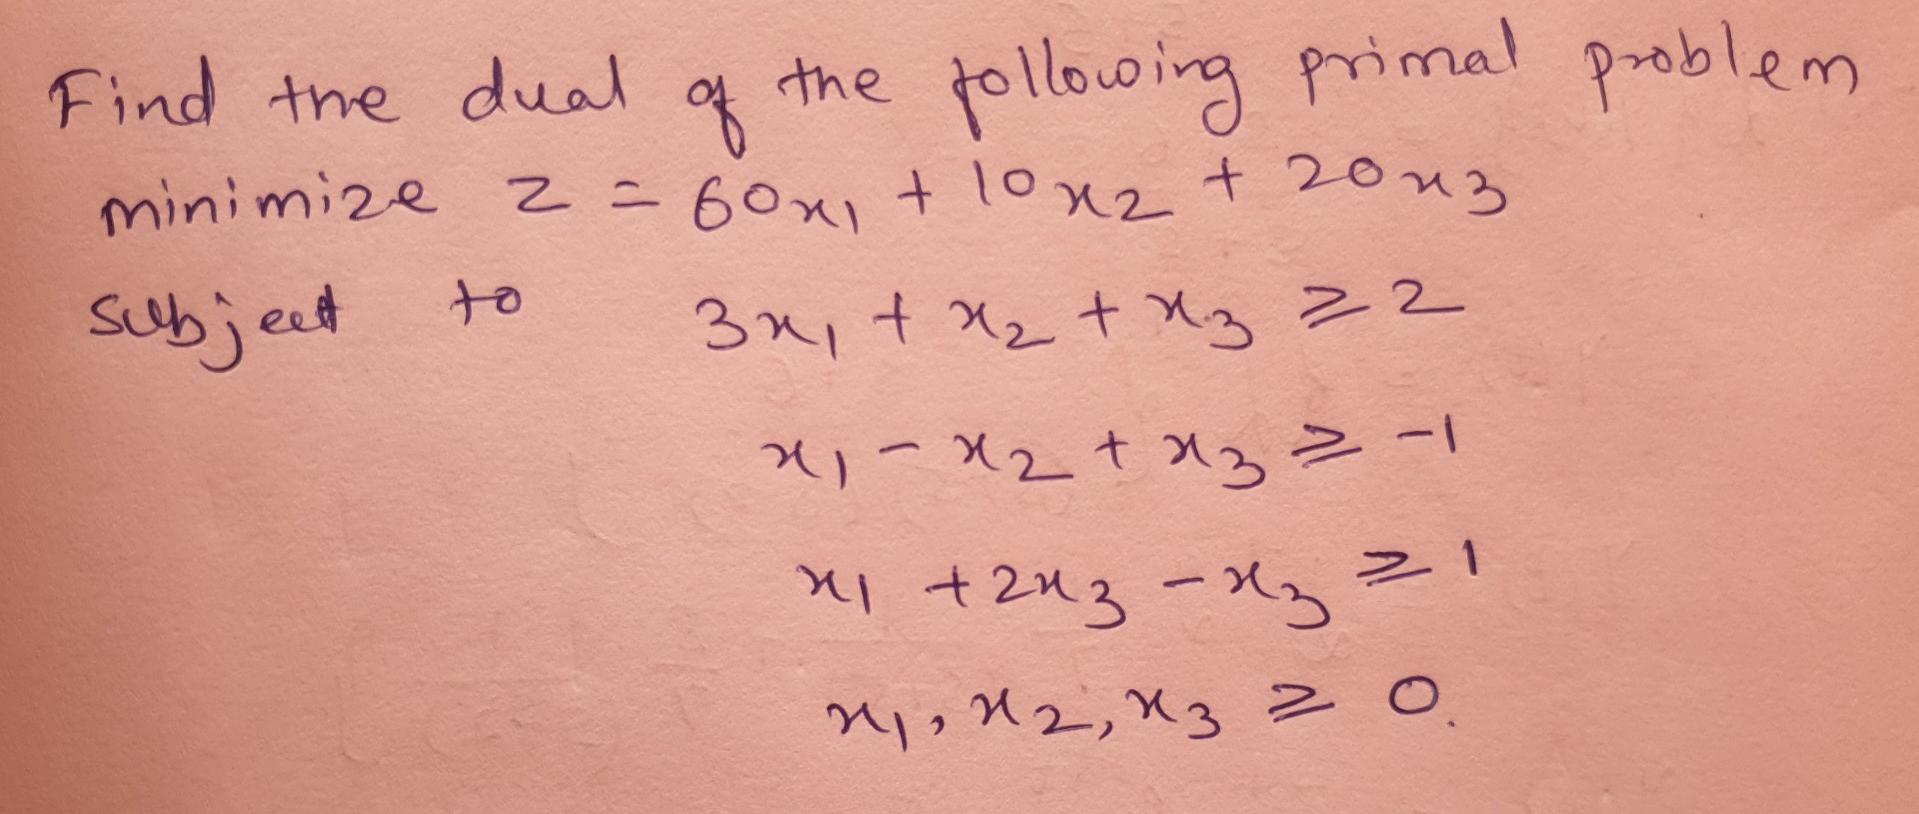 Find the dual of the following primal problem
minimize z = 60x₁ + 10x₂ + 20x₃
subject to 3x₁ + x₂ + x₃ ≥ 2
x₁ - x₂ + x₃ ≥ -1
x₁ + 2x₃ - x₃ ≥ 1
x₁, x₂, x₃ ≥ 0.